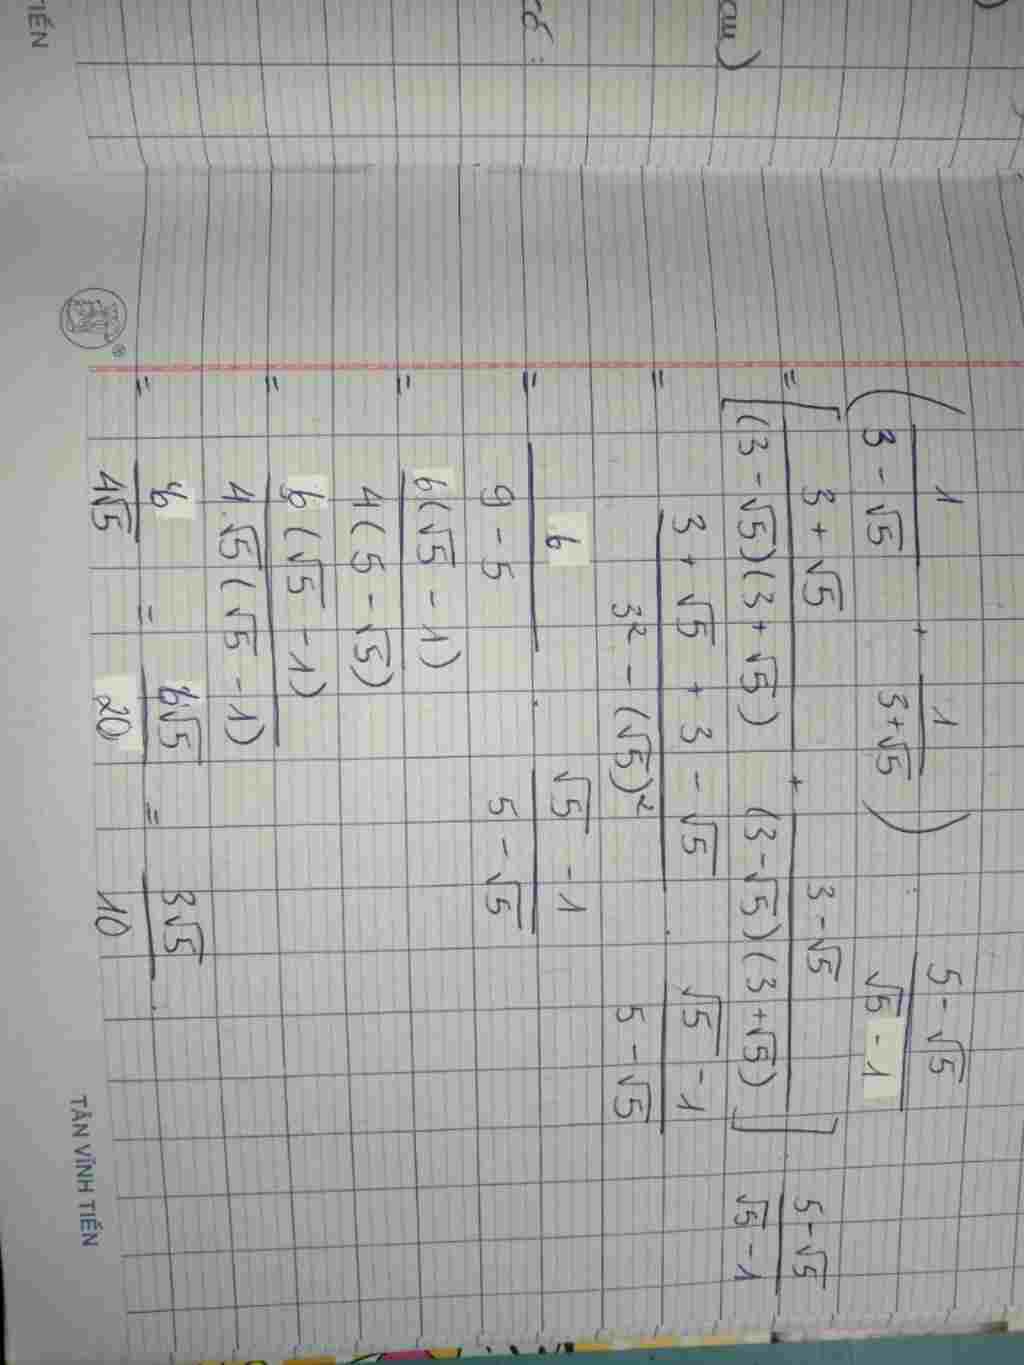 ( 1/(3 - √5) + 1/(3 + √5) ) : (5 - √5)/(√5 - 1)
= [ (3 + √5)/((3 - √5)(3 + √5)) + (3 - √5)/((3 - √5)(3 + √5)) ] : (5 - √5)/(√5 - 1)
= (3 + √5 + 3 - √5)/(3² - (√5)²) . (√5 - 1)/(5 - √5)
= 6/(9 - 5) . (√5 - 1)/(5 - √5)
= 6(√5 - 1)/(4(5 - √5))
= 6(√5 - 1)/(4.√5(√5 - 1))
= 6/(4√5) = 6√5/20 = 3√5/10.
TIẾN
®
TÂN VĨNH TIẾN